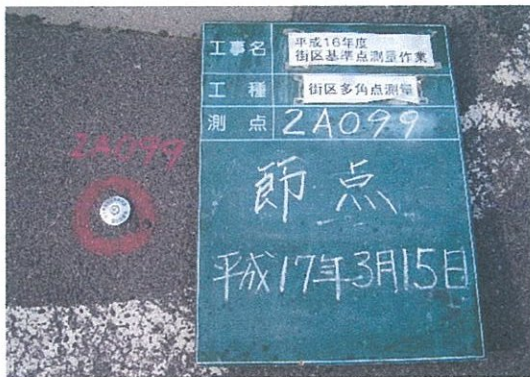 工事名 平成16年度
街区基準点測量作業
工種 街区多角点測量
測点 2A099
節点
平成17年3月15日
2A099